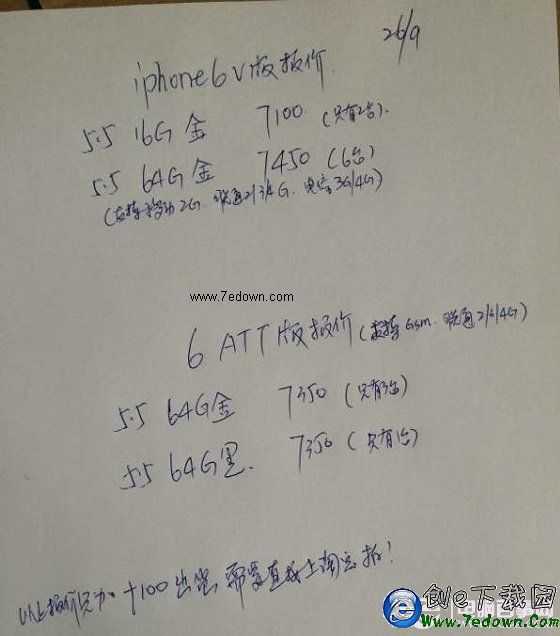 26/9
iphone6 V版报价
5.5 16G 金 7100 (只有2台).
5.5 64G 金 7450 (6台)
(支持移动2G. 联通2/3/4G. 电信3G/4G)
www.7edown.com
6 ATT版报价 (支持Gsm. 联通2/3/4G)
5.5 64G金 7350 (只有3台)
5.5 64G黑. 7350 (只有1台)
以上报价只加+100出货, 需要直接上淘宝拍!
创e下载园
Www.7edown.Com